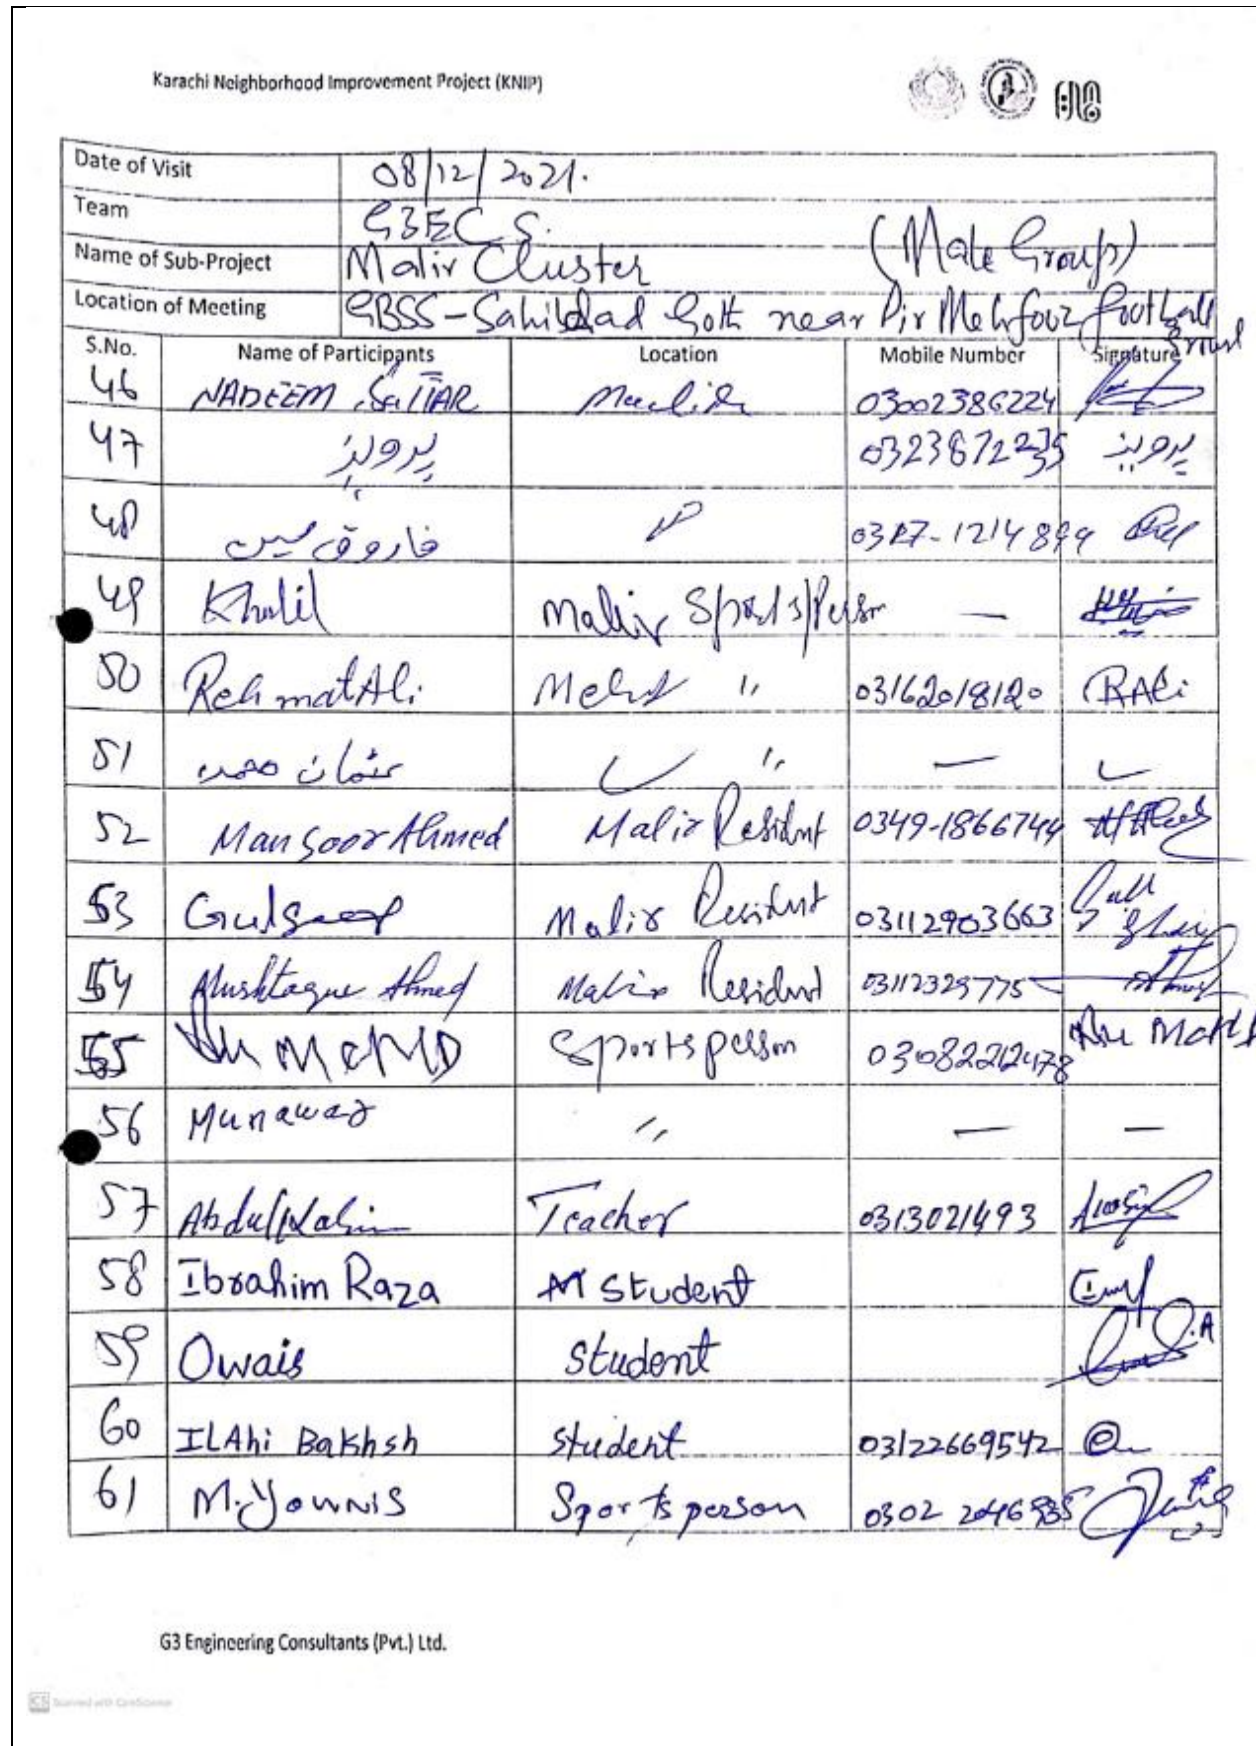 Karachi Neighborhood Improvement Project (KNIP)
Date of Visit 08/12/2021.
Team G3ECS.
Name of Sub-Project Malir Cluster (Male Group)
Location of Meeting GBSS-Sahibdad Goth near Pir Mehfooz football
S.No. Name of Participants Location Mobile Number Signature
46 NADEEM SaTTAR 03002386224
47 پرویز پرویز
48 فاروق 0327-1214899
49 Khalil Malir Sports/Person —
50 Rehmat Ali 〃 03162018120 RALi
51 عثمان 〃 —
52 Mansoor Ahmed Malir Resident 0349-1866744
53 Malir Resident 03112903663
54 Mushtaque Ahmed Malir Resident 03112329775
55 Sportsperson 03082212478
56 Munawar 〃 — —
57 Abdul Teacher 0313021493
58 Ibrahim Raza Student
59 Owais Student
60 ILAhi Bakhsh Student 03122669542
61 M. YOUNIS Sportsperson 0302
G3 Engineering Consultants (Pvt.) Ltd.
CS Scanned with CamScanner